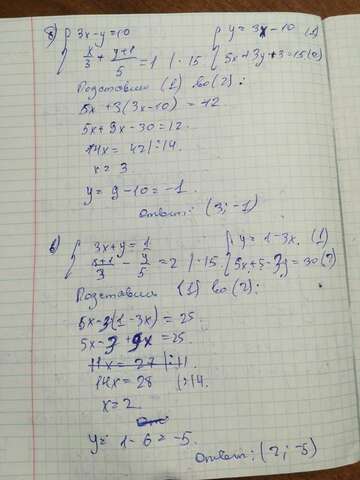 б) { 3x-y=10 { y = 3x - 10 (1)
x/3 + y+1/5 = 1 |·15 5x+3y+3=15 (2)
Подставим (1) во (2):
5x + 3(3x-10) = 12
5x + 9x - 30 = 12.
14x = 42 |:14.
x = 3
y = 9-10 = -1.
Ответ: (3; -1)
в) { 3x+y = 1 { y = 1-3x. (1)
x+1/3 - y/5 = 2 |·15. 5x+5-3y = 30 (2)
Подставим (1) во (2):
5x-3(1-3x) = 25.
5x-3+9x = 25.
11x = 27 |:11
14x = 28 |:14.
x = 2.
От
y = 1-6 = -5.
Ответ: (2; -5)